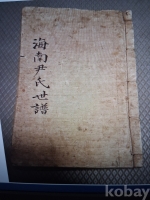 海南尹氏世譜
kobay